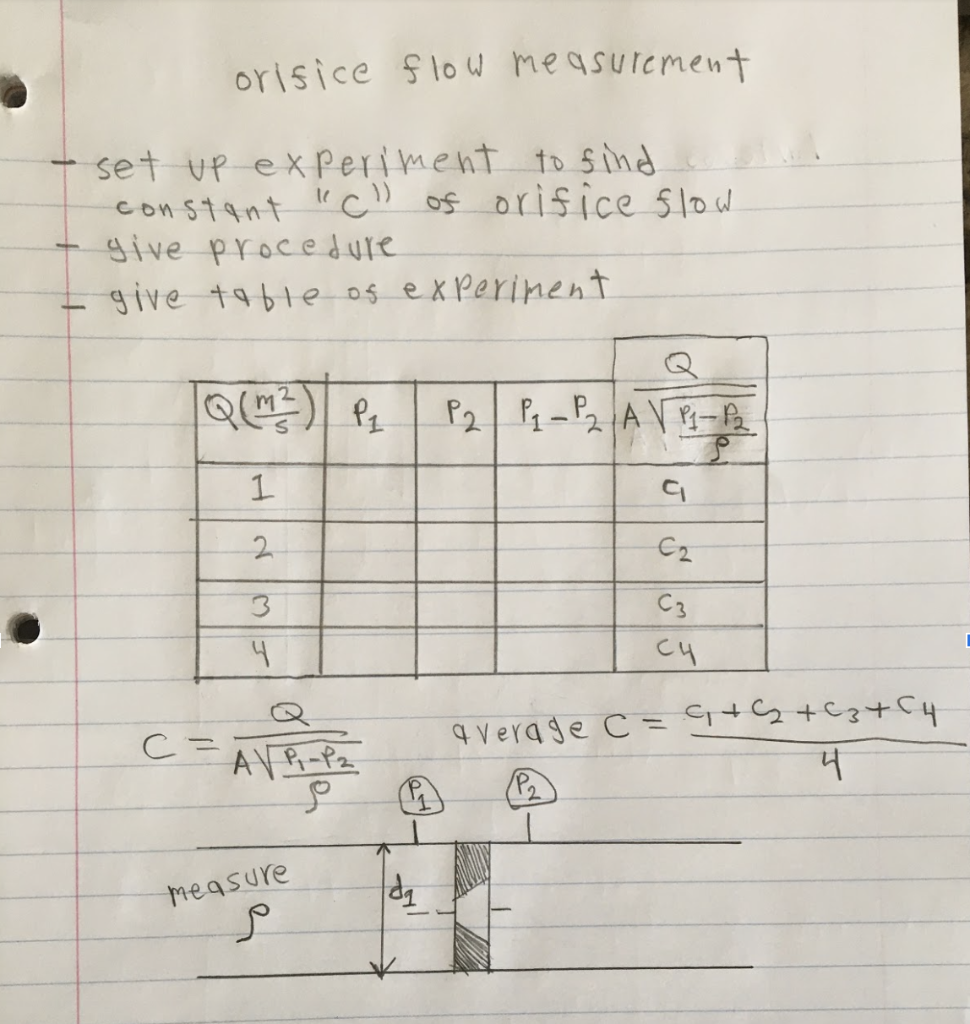 orifice flow measurement
- set up experiment to find
constant "C" of orifice flow
- give procedure
- give table of experiment
Q(m²/s) P₁ P₂ P₁-P₂ Q/A√(P₁-P₂/ρ)
1 C₁
2 C₂
3 C₃
4 C₄
C = Q/A√(P₁-P₂/ρ) average C = C₁+C₂+C₃+C₄/4
P₁ P₂
measure d₁
ρ